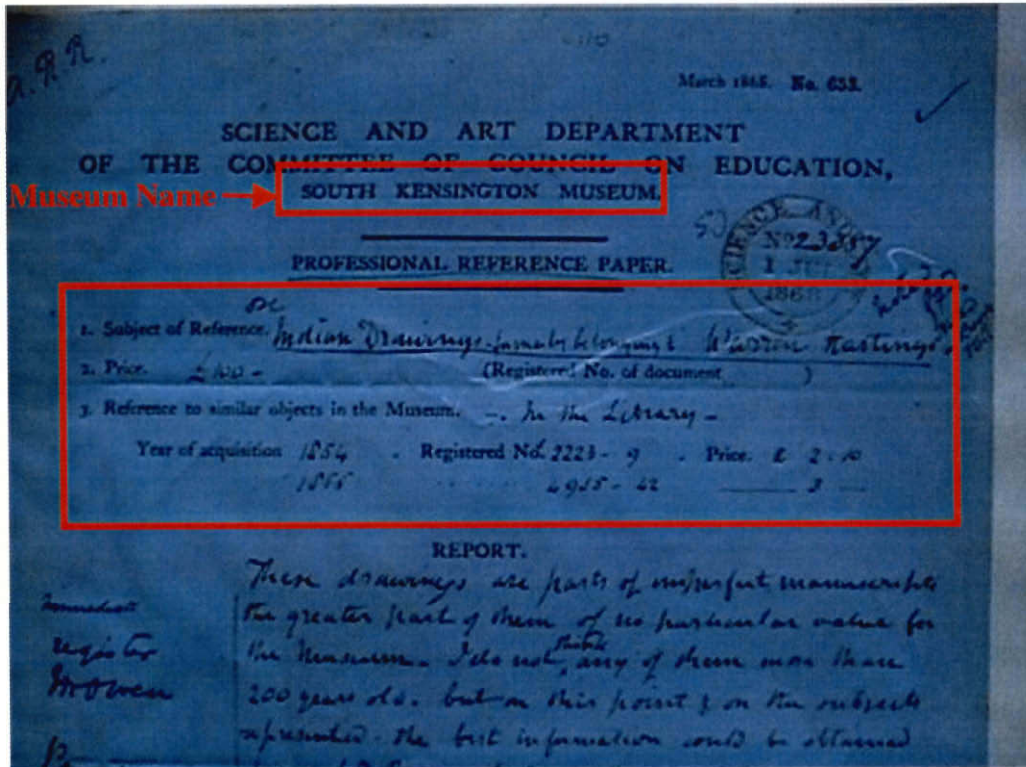 a. R R.
March 1868. No. 633.
SCIENCE AND ART DEPARTMENT
OF THE COMMITTEE OF COUNCIL ON EDUCATION,
Museum Name
SOUTH KENSINGTON MUSEUM.
SCIENCE AND
No 23857
1 JUL
1868
PROFESSIONAL REFERENCE PAPER.
1. Subject of Reference. Indian Drawings formerly belonging to Warren Hastings
2. Price. £100 - (Registered No. of document )
3. Reference to similar objects in the Museum. -. In the Library -
Year of acquisition 1854 . Registered No. 2223 - 9 . Price. £ 2 . 10
4955 - 42 3
REPORT.
These drawings are parts of imperfect manuscripts
the greater part of them of no particular value for
the Museum. I do not think any of them more than
200 years old. but on this point & on the subjects
represented - the best information could be obtained
register